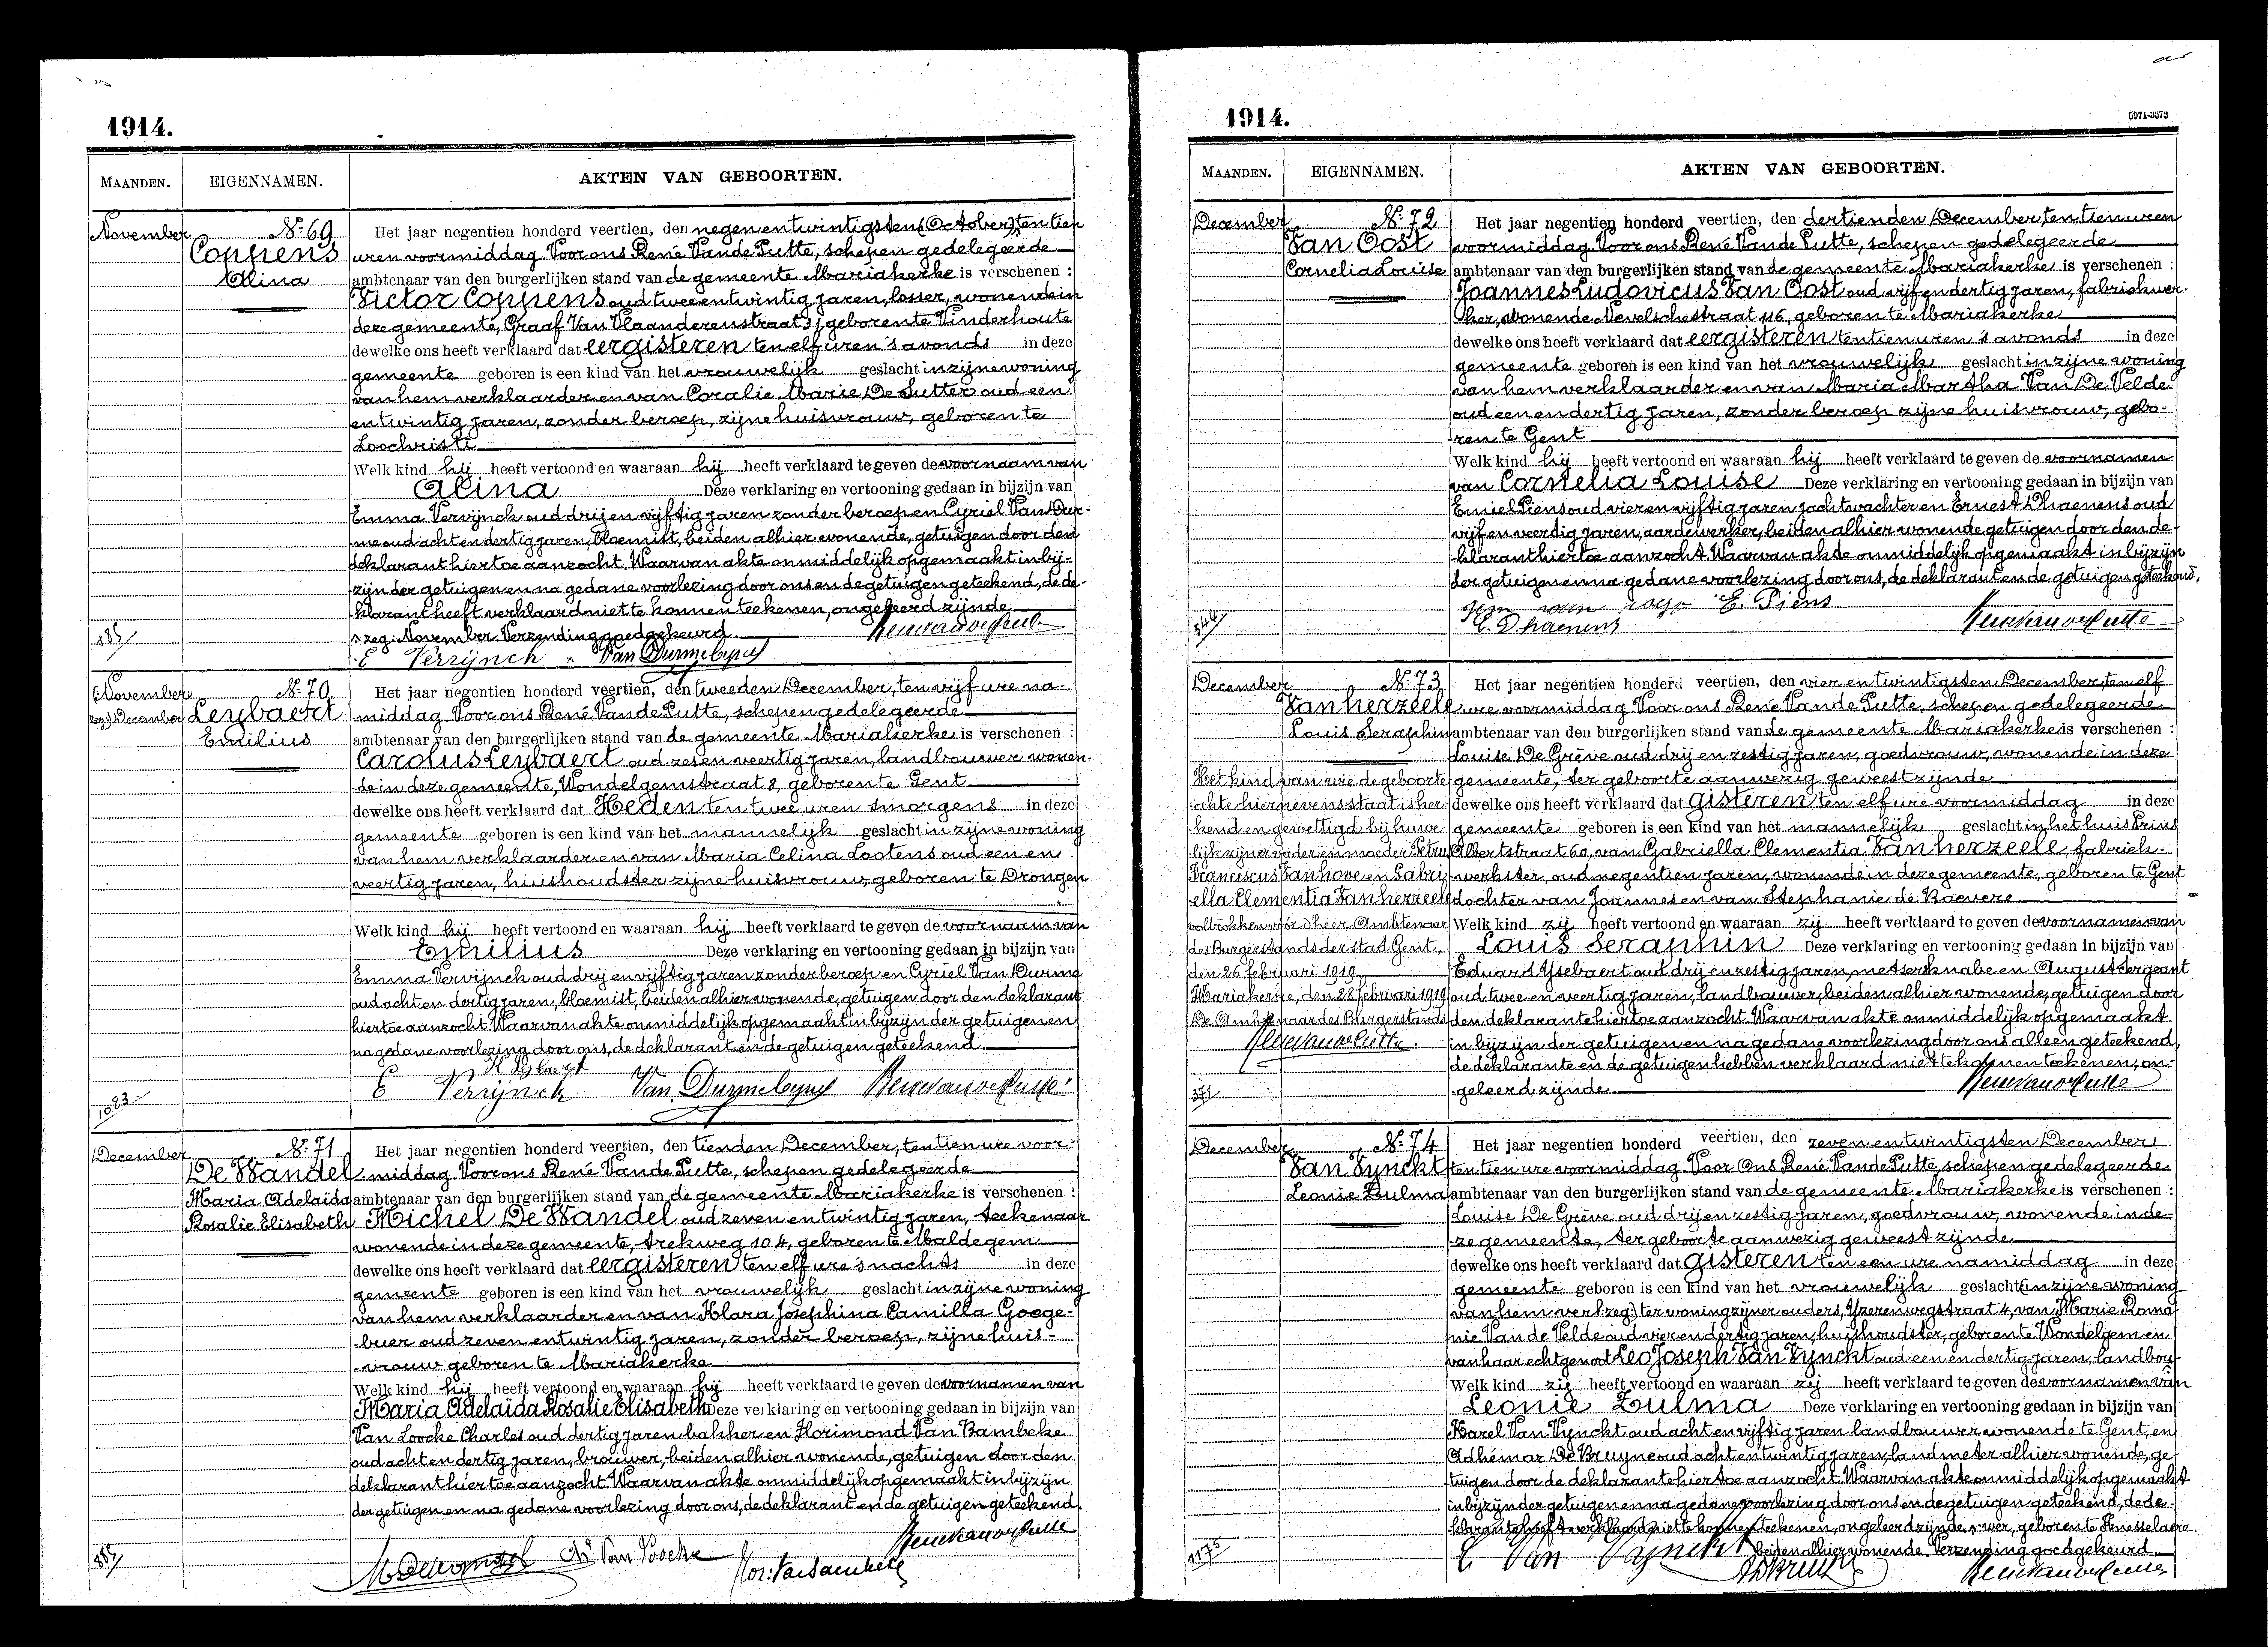 1914.
MAANDEN. EIGENNAMEN. AKTEN VAN GEBOORTEN.
November
No 69
Coppens
Alina
Het jaar negentien honderd veertien, den negenentwintigsten (October), ten tien
uren voormiddag Voor ons René Vande Putte, schepen gedelegeerde
ambtenaar van den burgerlijken stand van de gemeente Mariakerke is verschenen :
Victor Coppens oud tweeentwintig jaren, losser, wonende in
deze gemeente, Graaf Van Vlaanderenstraat 31, geboren te Vinderhoute
dewelke ons heeft verklaard dat eergisteren ten elf uren 's avonds in deze
gemeente geboren is een kind van het vrouwelijk geslacht in zijne woning
van hem verklaarder en van Coralie Marie De Sutter oud een
en twintig jaren, zonder beroep, zijne huisvrouw, geboren te
Loochristi
Welk kind hij heeft vertoond en waaraan hij heeft verklaard te geven de voornaam van
Alina Deze verklaring en vertooning gedaan in bijzijn van
Emma Vervijnck oud drij en vijftig jaren zonder beroep en Cyriel Van Dur-
me oud acht en dertig jaren, bloemist, beiden alhier wonende, getuigen door den
deklarant hiertoe aanzocht. Waarvan akte onmiddelijk opgemaakt in bij-
zijn der getuigen en na gedane voorlezing door ons en de getuigen geteekend, de de-
klarant heeft verklaard niet te konnen teekenen, ongeleerd zijnde
zeg: November. Verzending goedgekeurd.
E Verrijnck Van Durme Cyriel
November
zeg: December
No 70
Leybaert
Emilius
Het jaar negentien honderd veertien, den tweeden December, ten vijf ure na-
middag Voor ons René Vande Putte, schepen gedelegeerde
ambtenaar van den burgerlijken stand van de gemeente Mariakerke is verschenen :
Carolus Leybaert oud zes en veertig jaren, landbouwer wonen-
de in deze gemeente, Wondelgemstraat 8, geboren te Gent
dewelke ons heeft verklaard dat Heden ten twee uren smorgens in deze
gemeente geboren is een kind van het mannelijk geslacht in zijne woning
van hem verklaarder en van Maria Celina Lootens oud een en
veertig jaren, huishoudster zijne huisvrouw, geboren te Drongen
Welk kind hij heeft vertoond en waaraan hij heeft verklaard te geven de voornaam van
Emilius Deze verklaring en vertooning gedaan in bijzijn van
Emma Vervijnck oud drij en vijftig jaren zonder beroep en Cyriel Van Durme
oud acht en dertig jaren, bloemist, beiden alhier wonende, getuigen door den deklarant
hiertoe aanzocht. Waarvan akte onmiddelijk opgemaakt in bijzijn der getuigen en
na gedane voorlezing door ons, de deklarant en de getuigen geteekend.
K Lybaert
E Verrijnck Van Durme Cyriel
1023
December
No 71
De Wandel
Maria Adelaïda
Rosalie Elisabeth
Het jaar negentien honderd veertien, den tienden December, ten tien ure voor-
middag Voor ons René Vande Putte, schepen gedelegeerde
ambtenaar van den burgerlijken stand van de gemeente Mariakerke is verschenen :
Michel De Wandel oud zeven en twintig jaren, teekenaar
wonende in deze gemeente, Trekweg 104, geboren te Maldegem
dewelke ons heeft verklaard dat eergisteren ten elf ure 's nachts in deze
gemeente geboren is een kind van het vrouwelijk geslacht in zijne woning
van hem verklaarder en van Klara Josephina Camilla Goege-
buer oud zeven en twintig jaren, zonder beroep, zijne huis-
vrouw geboren te Mariakerke
Welk kind hij heeft vertoond en waaraan hij heeft verklaard te geven de voornamen van
Maria Adelaïda Rosalie Elisabeth Deze verklaring en vertooning gedaan in bijzijn van
Van Loocke Charles oud dertig jaren bakker en Florimond Van Bambeke
oud acht en dertig jaren, brouwer, beiden alhier wonende, getuigen door den
deklarant hiertoe aanzocht. Waarvan akte onmiddelijk opgemaakt in bijzijn
der getuigen en na gedane voorlezing door ons, de deklarant en de getuigen geteekend.
Ch Van Loocke
1914.
5971-3373
MAANDEN. EIGENNAMEN. AKTEN VAN GEBOORTEN.
December
No 72
Van Oost
Cornelia Louise
Het jaar negentien honderd veertien, den dertienden December, ten tien uren
voormiddag Voor ons René Vande Putte, schepen gedelegeerde
ambtenaar van den burgerlijken stand van de gemeente Mariakerke is verschenen :
Joannes Ludovicus Van Oost oud vijf en dertig jaren, fabriekwer-
ker, wonende Nevelschestraat 116, geboren te Mariakerke
dewelke ons heeft verklaard dat eergisteren ten tien uren 's avonds in deze
gemeente geboren is een kind van het vrouwelijk geslacht in zijne woning
van hem verklaarder en van Maria Martha Van De Velde
oud een en dertig jaren, zonder beroep zijne huisvrouw, gebo-
ren te Gent
Welk kind hij heeft vertoond en waaraan hij heeft verklaard te geven de voornamen
van Cornelia Louise Deze verklaring en vertooning gedaan in bijzijn van
Emiel Piens oud vier en vijftig jaren jachtwachter en Ernest Dhaenens oud
vijf en veertig jaren, aardewerker, beiden alhier wonende getuigen door den de-
klarant hiertoe aanzocht. Waarvan akte onmiddelijk opgemaakt in bijzijn
der getuigen en na gedane voorlezing door ons, de deklarant en de getuigen geteekend,
E. Piens
E. Dhaenens
544
December
No 73
Vanherzeele
Louis Seraphin
Het kind van wie de geboorte
akte hiernevens staat is her-
kend en gewettigd bij huwe-
lijk zijner vader en moeder Petrus
Franciscus Vanhove en Gabri-
ella Clementia Vanherzeele
voltrokken vóór d'heer Ambtenaar
des Burgerstands der stad Gent,
den 26 februari 1919
Mariakerke, den 28 februari 1919
De Ambtenaar des Burgerstands
Het jaar negentien honderd veertien, den vier en twintigsten December, ten elf
ure voormiddag Voor ons René Vande Putte, schepen gedelegeerde
ambtenaar van den burgerlijken stand van de gemeente Mariakerke is verschenen :
Louise De Grève oud drij en zestig jaren, goedvrouw, wonende in deze
gemeente, ter geboorte aanwezig geweest zijnde
dewelke ons heeft verklaard dat gisteren ten elf ure voormiddag in deze
gemeente geboren is een kind van het mannelijk geslacht in het huis Prins
Albertstraat 60, van Gabriella Clementia Vanherzeele, fabriek-
werkster, oud negentien jaren, wonende in deze gemeente, geboren te Gent
dochter van Joannes en van Stephanie de Baevere
Welk kind zij heeft vertoond en waaraan zij heeft verklaard te geven de voornamen van
Louis Seraphin Deze verklaring en vertooning gedaan in bijzijn van
Eduard Ysebaert oud drij en zestig jaren, metserknabe en August Sergeant
oud twee en veertig jaren, landbouwer, beiden alhier wonende, getuigen door
den deklarante hiertoe aanzocht. Waarvan akte onmiddelijk opgemaakt
in bijzijn der getuigen en na gedane voorlezing door ons alleen geteekend,
de deklarante en de getuigen hebben verklaard niet te konnen teekenen, on-
geleerd zijnde.
371
December
No 74
Van Vynckt
Leonie Zulma
Het jaar negentien honderd veertien, den zeven en twintigsten December
ten tien ure voormiddag Voor Ons René Vande Putte, schepen gedelegeerde
ambtenaar van den burgerlijken stand van de gemeente Mariakerke is verschenen :
Louise De Grève oud drij en zestig jaren, goedvrouw, wonende in de-
ze gemeente, ter geboorte aanwezig geweest zijnde
dewelke ons heeft verklaard dat gisteren ten een ure namiddag in deze
gemeente geboren is een kind van het vrouwelijk geslacht (in zijne woning
van hem verk: zeg:) ter woning zijner ouders, Yzerenwegstraat 4, van Marie Roma-
nie Van de Velde oud vier en dertig jaren, huishoudster, geboren te Wondelgem en
van haar echtgenoot Leo Joseph Van Vynckt oud een en dertig jaren, landbou-
Welk kind zij heeft vertoond en waaraan zij heeft verklaard te geven de voornamen van
Leonie Zulma Deze verklaring en vertooning gedaan in bijzijn van
Karel Van Vynckt oud acht en vijftig jaren landbouwer wonende te Gent, en
Adhémar De Bruyne oud acht en twintig jaren, landmeter alhier wonende, ge-
tuigen door de deklarante hiertoe aanzocht. Waarvan akte onmiddelijk opgemaakt
in bijzijn der getuigen en na gedane voorlezing door ons en de getuigen geteekend, de de-
klarante heeft verklaard niet te konnen teekenen, ongeleerd zijnde, wer, geboren te Knesselaere.
beiden alhier wonende. Verzending goedgekeurd
Van Vynckt
1175